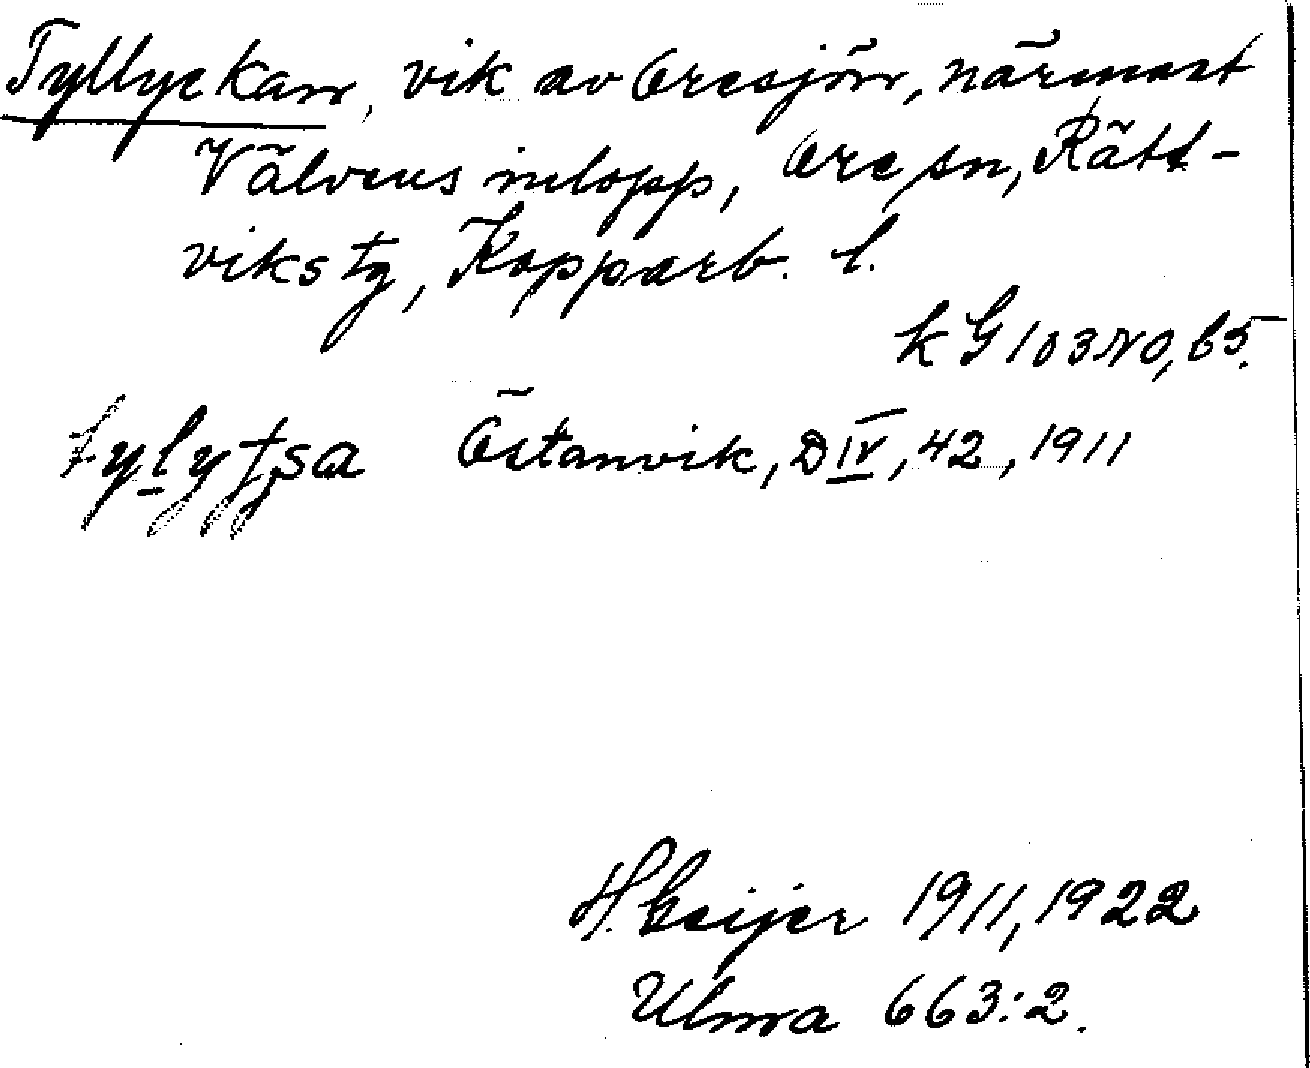 Tyllyckan, vik av Oresjön, närmast
Välvens inlopp, Ore sn, Rätt-
viks tg, Kopparb. l.
k G 103 NO, b5.
Östanvik, D IV, 42, 1911
H. Geijer 1911, 1922
Ulma 663:2.